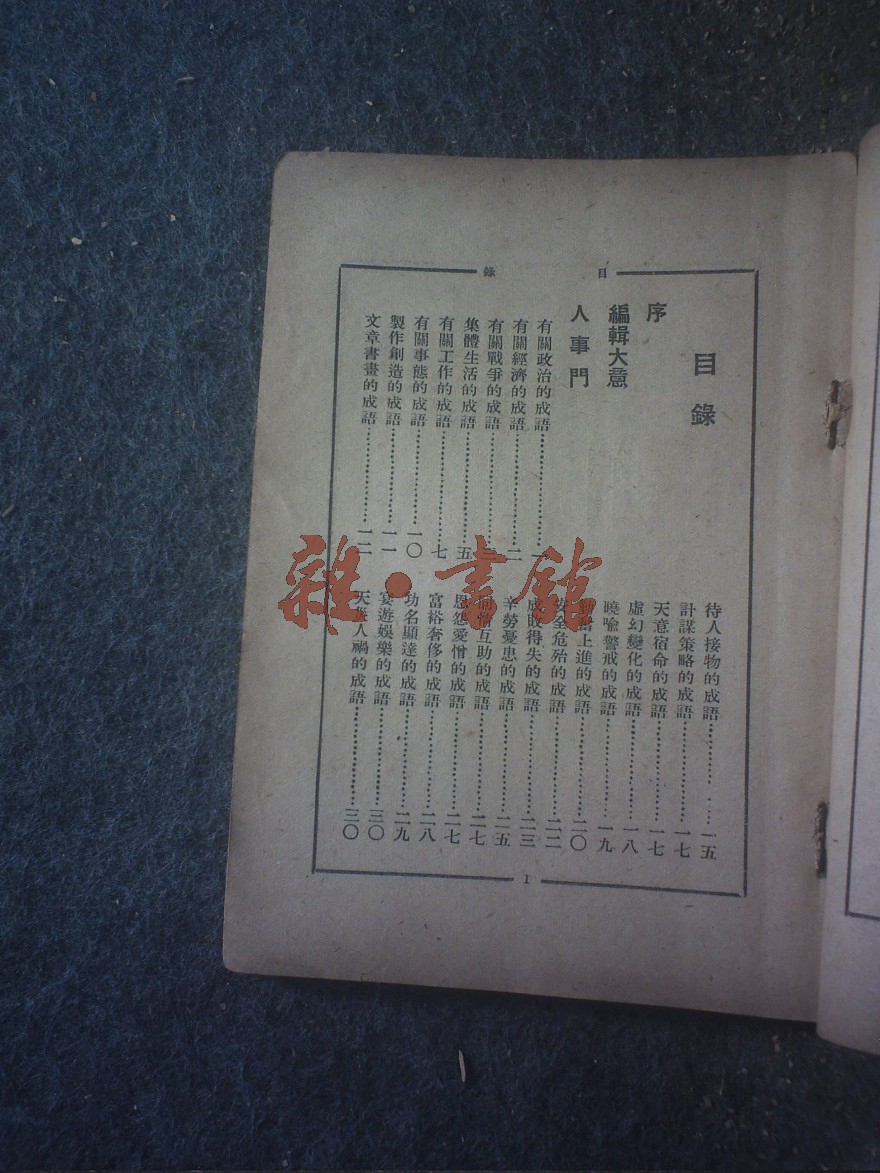 目錄
目錄
序
編輯大意
人事門
有關政治的成語……一
有關經濟的成語……二
有關戰爭的成語……
集體生活的成語……五
有關工作的成語……七
有關事態的成語……一〇
製作創造的成語……一一
文章書畫的成語……一二
待人接物的成語……一五
計謀策略的成語……一七
天意宿命的成語……一七
虛幻變化的成語……一八
曉喻警戒的成語……一九
上進的成語……二〇
安全危殆的成語……二二
成敗得失的成語……二三
辛勞憂患的成語……二五
同情互助的成語……二七
恩怨愛憎的成語……二七
富裕奢侈的成語……二八
功名顯達的成語……二九
宴遊娛樂的成語……三〇
天災人禍的成語……三〇
1
雜·書館